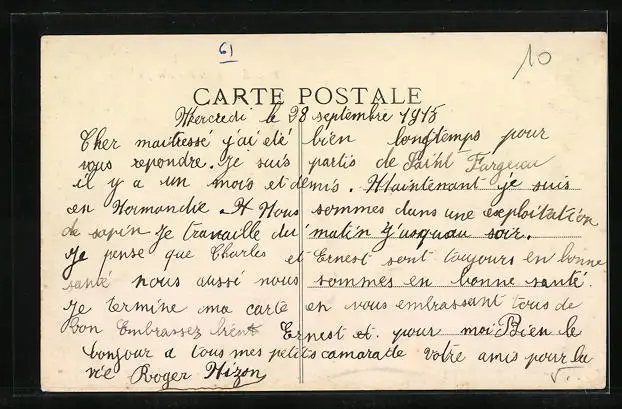 61
10
CARTE POSTALE
Mercredi le 28 septembre 1915
Cher maitressé j'ai été bien longtemps pour
vous repondre. Je suis partis de Saint Fargeau
il y a un mois et demis. Maintenant je suis
en Normandie Nous sommes dans une exploitation
de sapin Je travaille du matin J'usquau soir.
Je pense que Charles et Ernest sont toujours en bonne
santé nous aussi nous sommes en bonne santé.
Je termine ma carte en vous embrassant tous de
bon Embrassez bient Ernest et pour moi Bien le
bonjour a tous mes petits camaratte Votre amis pour la
vie Roger Hizon